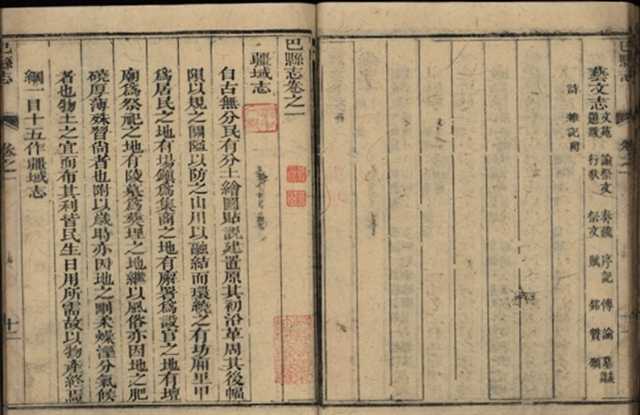 巴縣志
藝文志 文苑 諭祭文 奏議 序記 傳論 墓誌
題跋 行狀 祭文 賦 銘贊頌
詩 雜記附
巴縣志卷之一
疆域志
自古無分民有分土繪圖貼說建置原其初沿革周其後幅
限以規之關隘以防之山川以融結而環繞之有坊廂里甲
為居民之地有場鎮為集商之地有廨署為設官之地有壇
廟為祭祀之地有陵墓為葬埋之地繼以風俗亦因地之肥
磽厚薄殊習尚者也附以歲時亦因地之剛柔燥溼分氣候
者也物土之宜而布其利皆民生日用所需故以物產終焉
綱一目十五作疆域志
巴縣志 卷之一